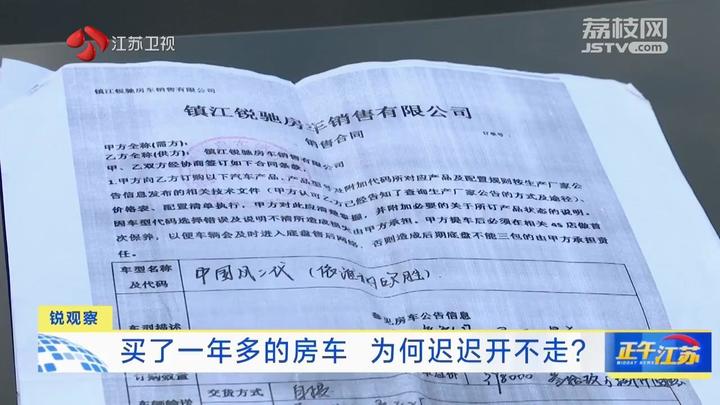 江苏卫视
荔枝网
JSTV.com
镇江锐驰房车销售有限公司
镇江锐驰房车销售有限公司
销售合同
订单号:
甲方全称(需方):
乙方全称(供方): 镇江锐驰房车销售有限公司
甲、乙双方经协商签订如下合同条款,
1.甲方向乙方订购以下汽车产品、产品型号及附加代码所对应产品及配置规则按生产厂家公
告信息发布的相关技术文件(甲方认可乙方已经告知了查询生产厂家公告的方式及途径)、
价格表、配置清单执行,甲方对此应清楚掌握,并附加必要的关于所订产品状态的说明。
因车型代码选择错误及说明不清所造成损失由甲方承担。甲方提车后必须在相关4S店做首
次保养,以便车辆会及时进入底盘售后网络,否则造成后期底盘不能三包的由甲方承担责
任。
车型名称
及代码
中国风二代(依维柯欧胜)
参见房车公告信息
车型描述
锐观察
买了一年多的房车 为何迟迟开不走?
正午江苏
MIDDAY NEWS
订购数量
378000
交货方式
自提
车辆输送